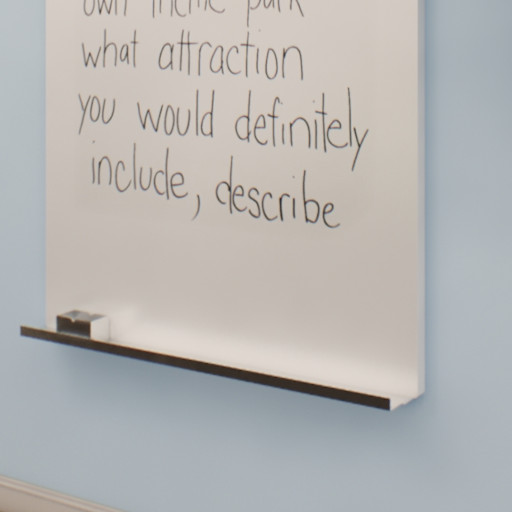 own theme park
what attraction
you would definitely
include, describe